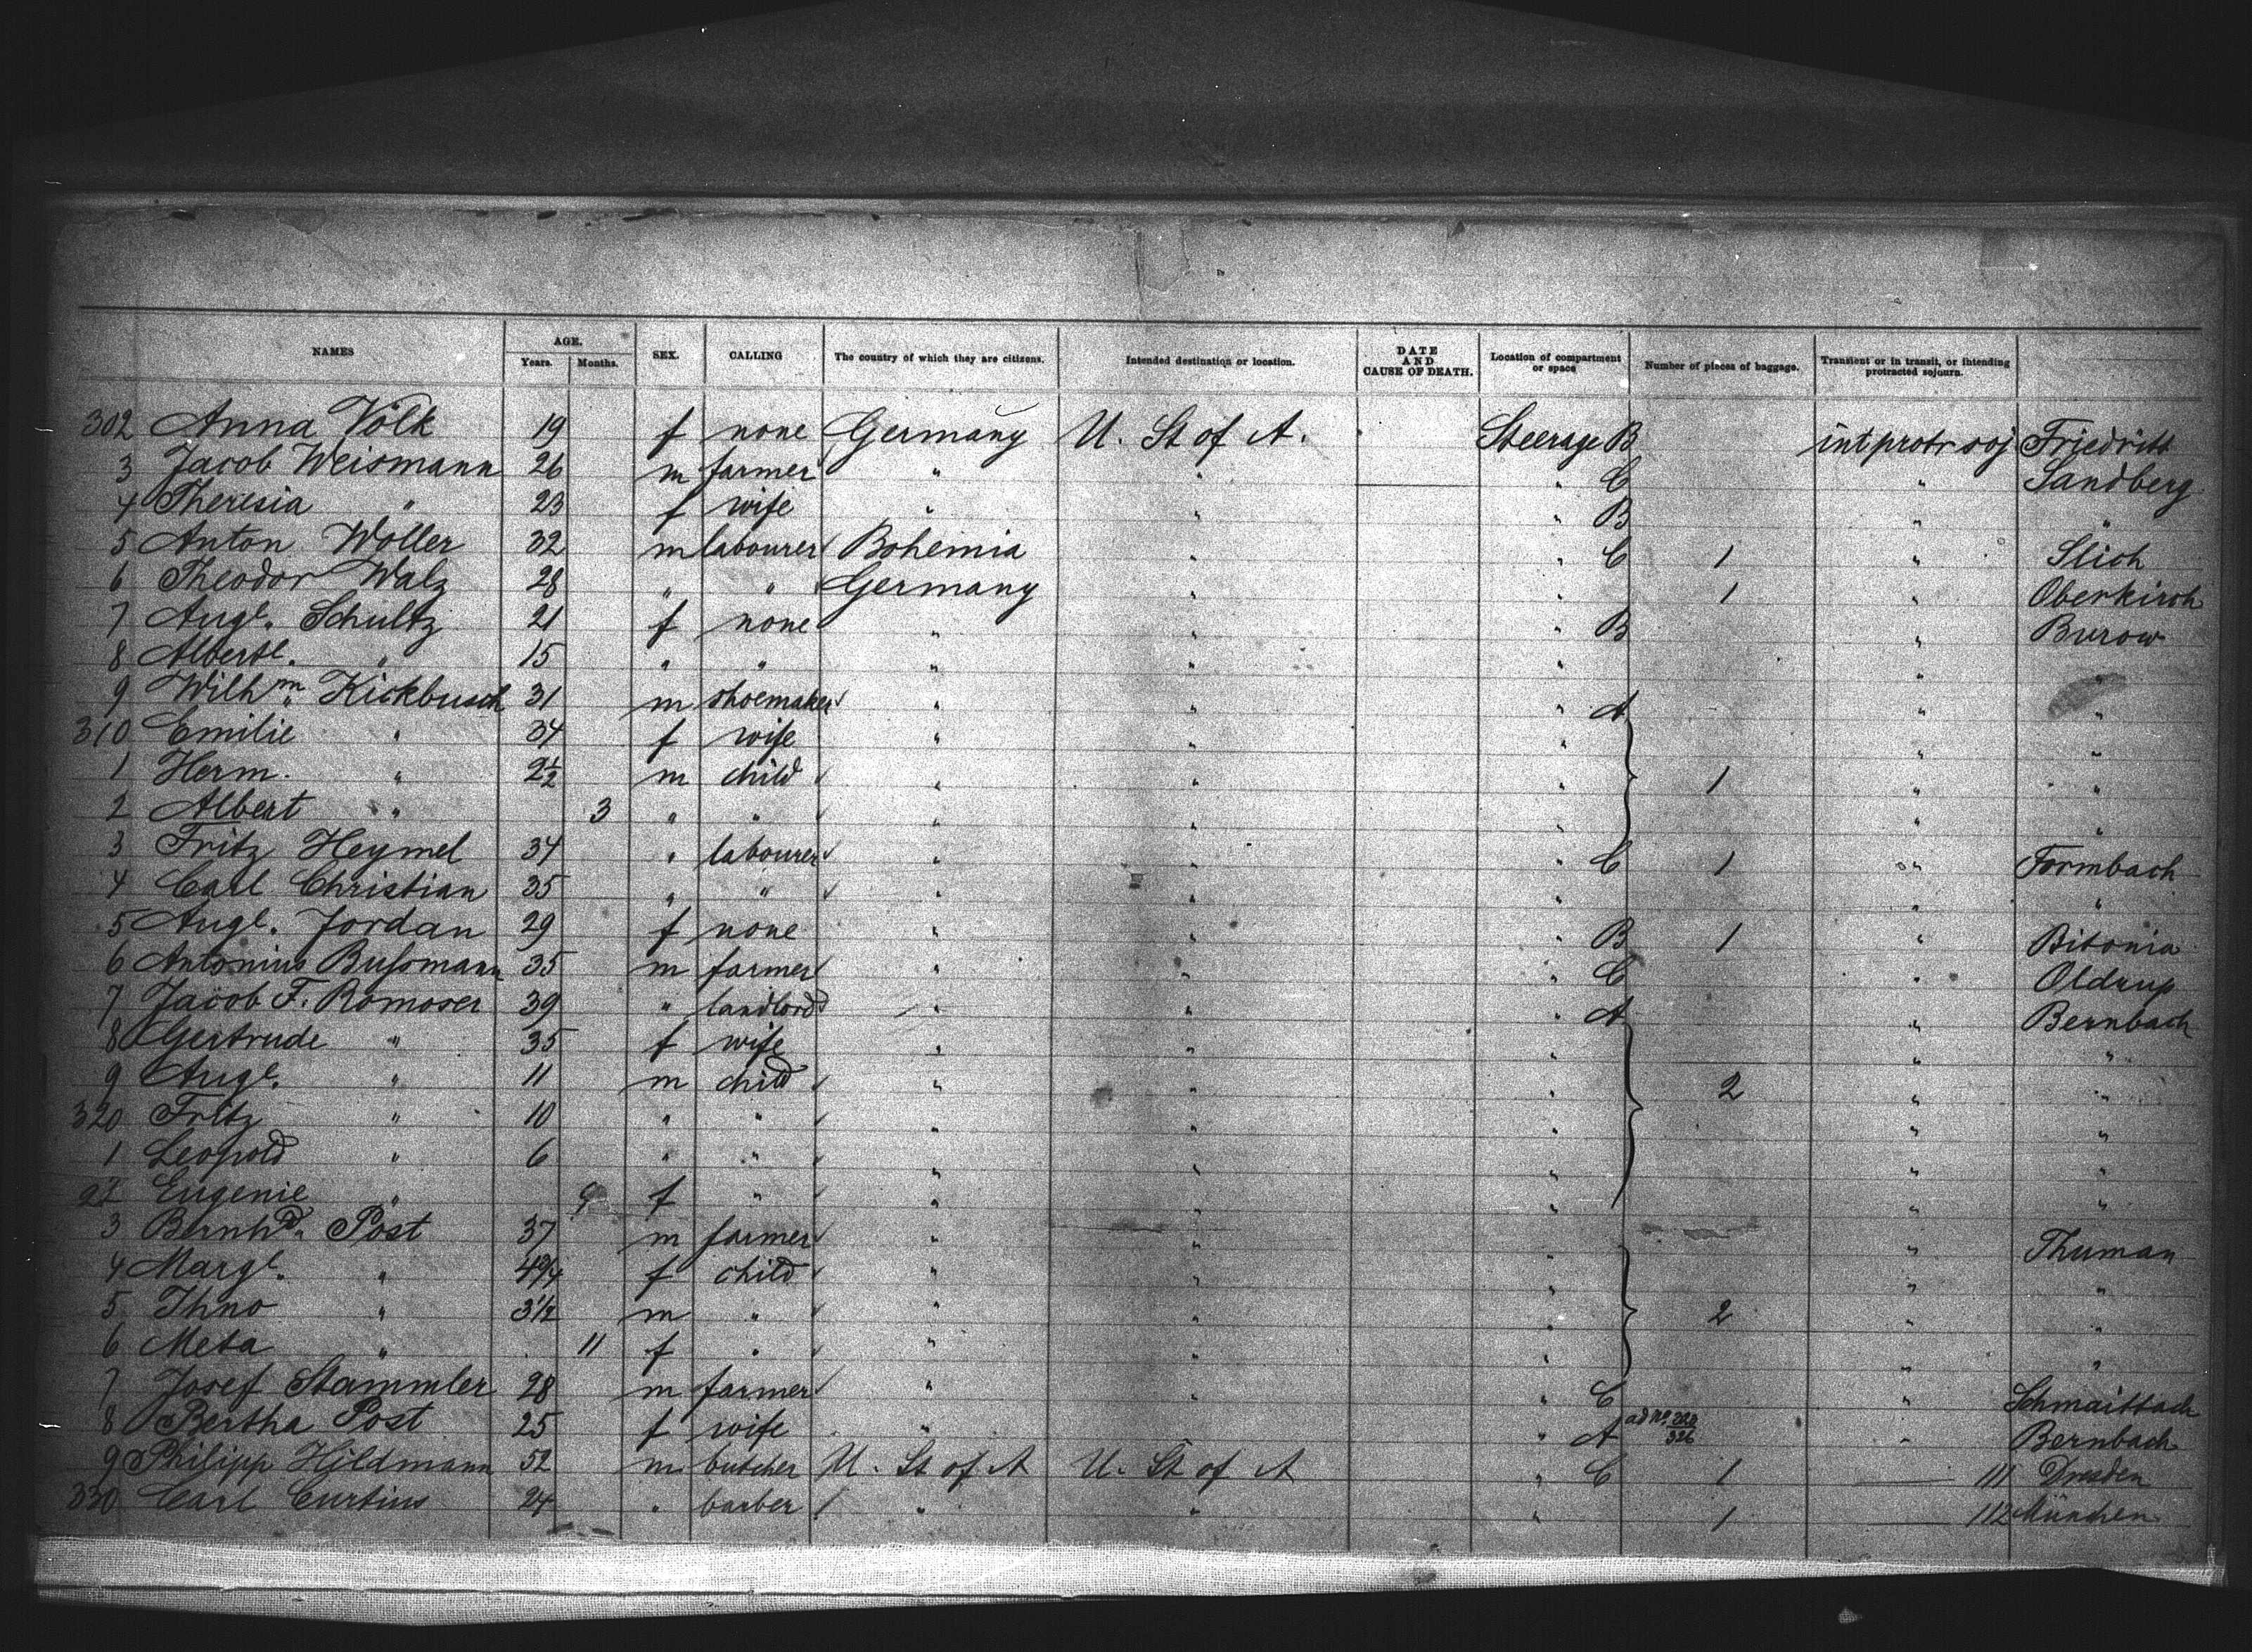 NAMES AGE. Years. Months. SEX. CALLING The country of which they are citizens. Intended destination or location. DATE AND CAUSE OF DEATH. Location of compartment or space Number of pieces of baggage. Transient or in transit, or intending protracted sojourn.
302 Anna Völk 19 f none Germany U. St of A. Steerage B int protr soj Friedritt
3 Jacob Weismann 26 m farmer " " " C " Sandberg
4 Theresia " 23 f wife " " " B " "
5 Anton Woller 32 m labourer Bohemia " " C 1 " Slich
6 Theodor Walz 28 " " Germany " " 1 " Oberkirch
7 Auge. Schultz 21 f none " " " B " Burow
8 Alberte. " 15 " " " " " " "
9 Wilhm. Kickbusch 31 m shoemaker " " " A " "
310 Emilie " 34 f wife " " " " "
1 Herm. " 2½ m child " " " 1 " "
2 Albert " 3 " " " " " " "
3 Fritz Heymel 34 " labourer " " " C 1 " Formbach
4 Carl Christian 35 " " " " " " "
5 Auge. Jordan 29 f none " " " B 1 " Bitonia
6 Antonius Bußmann 35 m farmer " " " C " Oldrup
7 Jacob F. Romoser 39 " landlord " " " A " Bernbach
8 Gertrude " 35 f wife " " " " "
9 Auge. " 11 m child " " " 2 " "
320 Fritz " 10 " " " " " " "
1 Leopold " 6 " " " " " " "
2 Eugenie " 9 f " " " " " "
3 Bernhd. Post 37 m farmer " " " " Thuman
4 Marge. " 4¾ f child " " " " "
5 Ihno " 3½ m " " " " 2 " "
6 Meta " 11 f " " " " " "
7 Josef Stammler 28 m farmer " " " C " Schmaittach
8 Bertha Post 25 f wife " " A ad no. 323 326 " Bernbach
9 Philipp Hildmann 52 m butcher U. St of A U. St of A " C 1 111 Dresden
330 Carl Curtius 24 " barber " " " 1 112 München